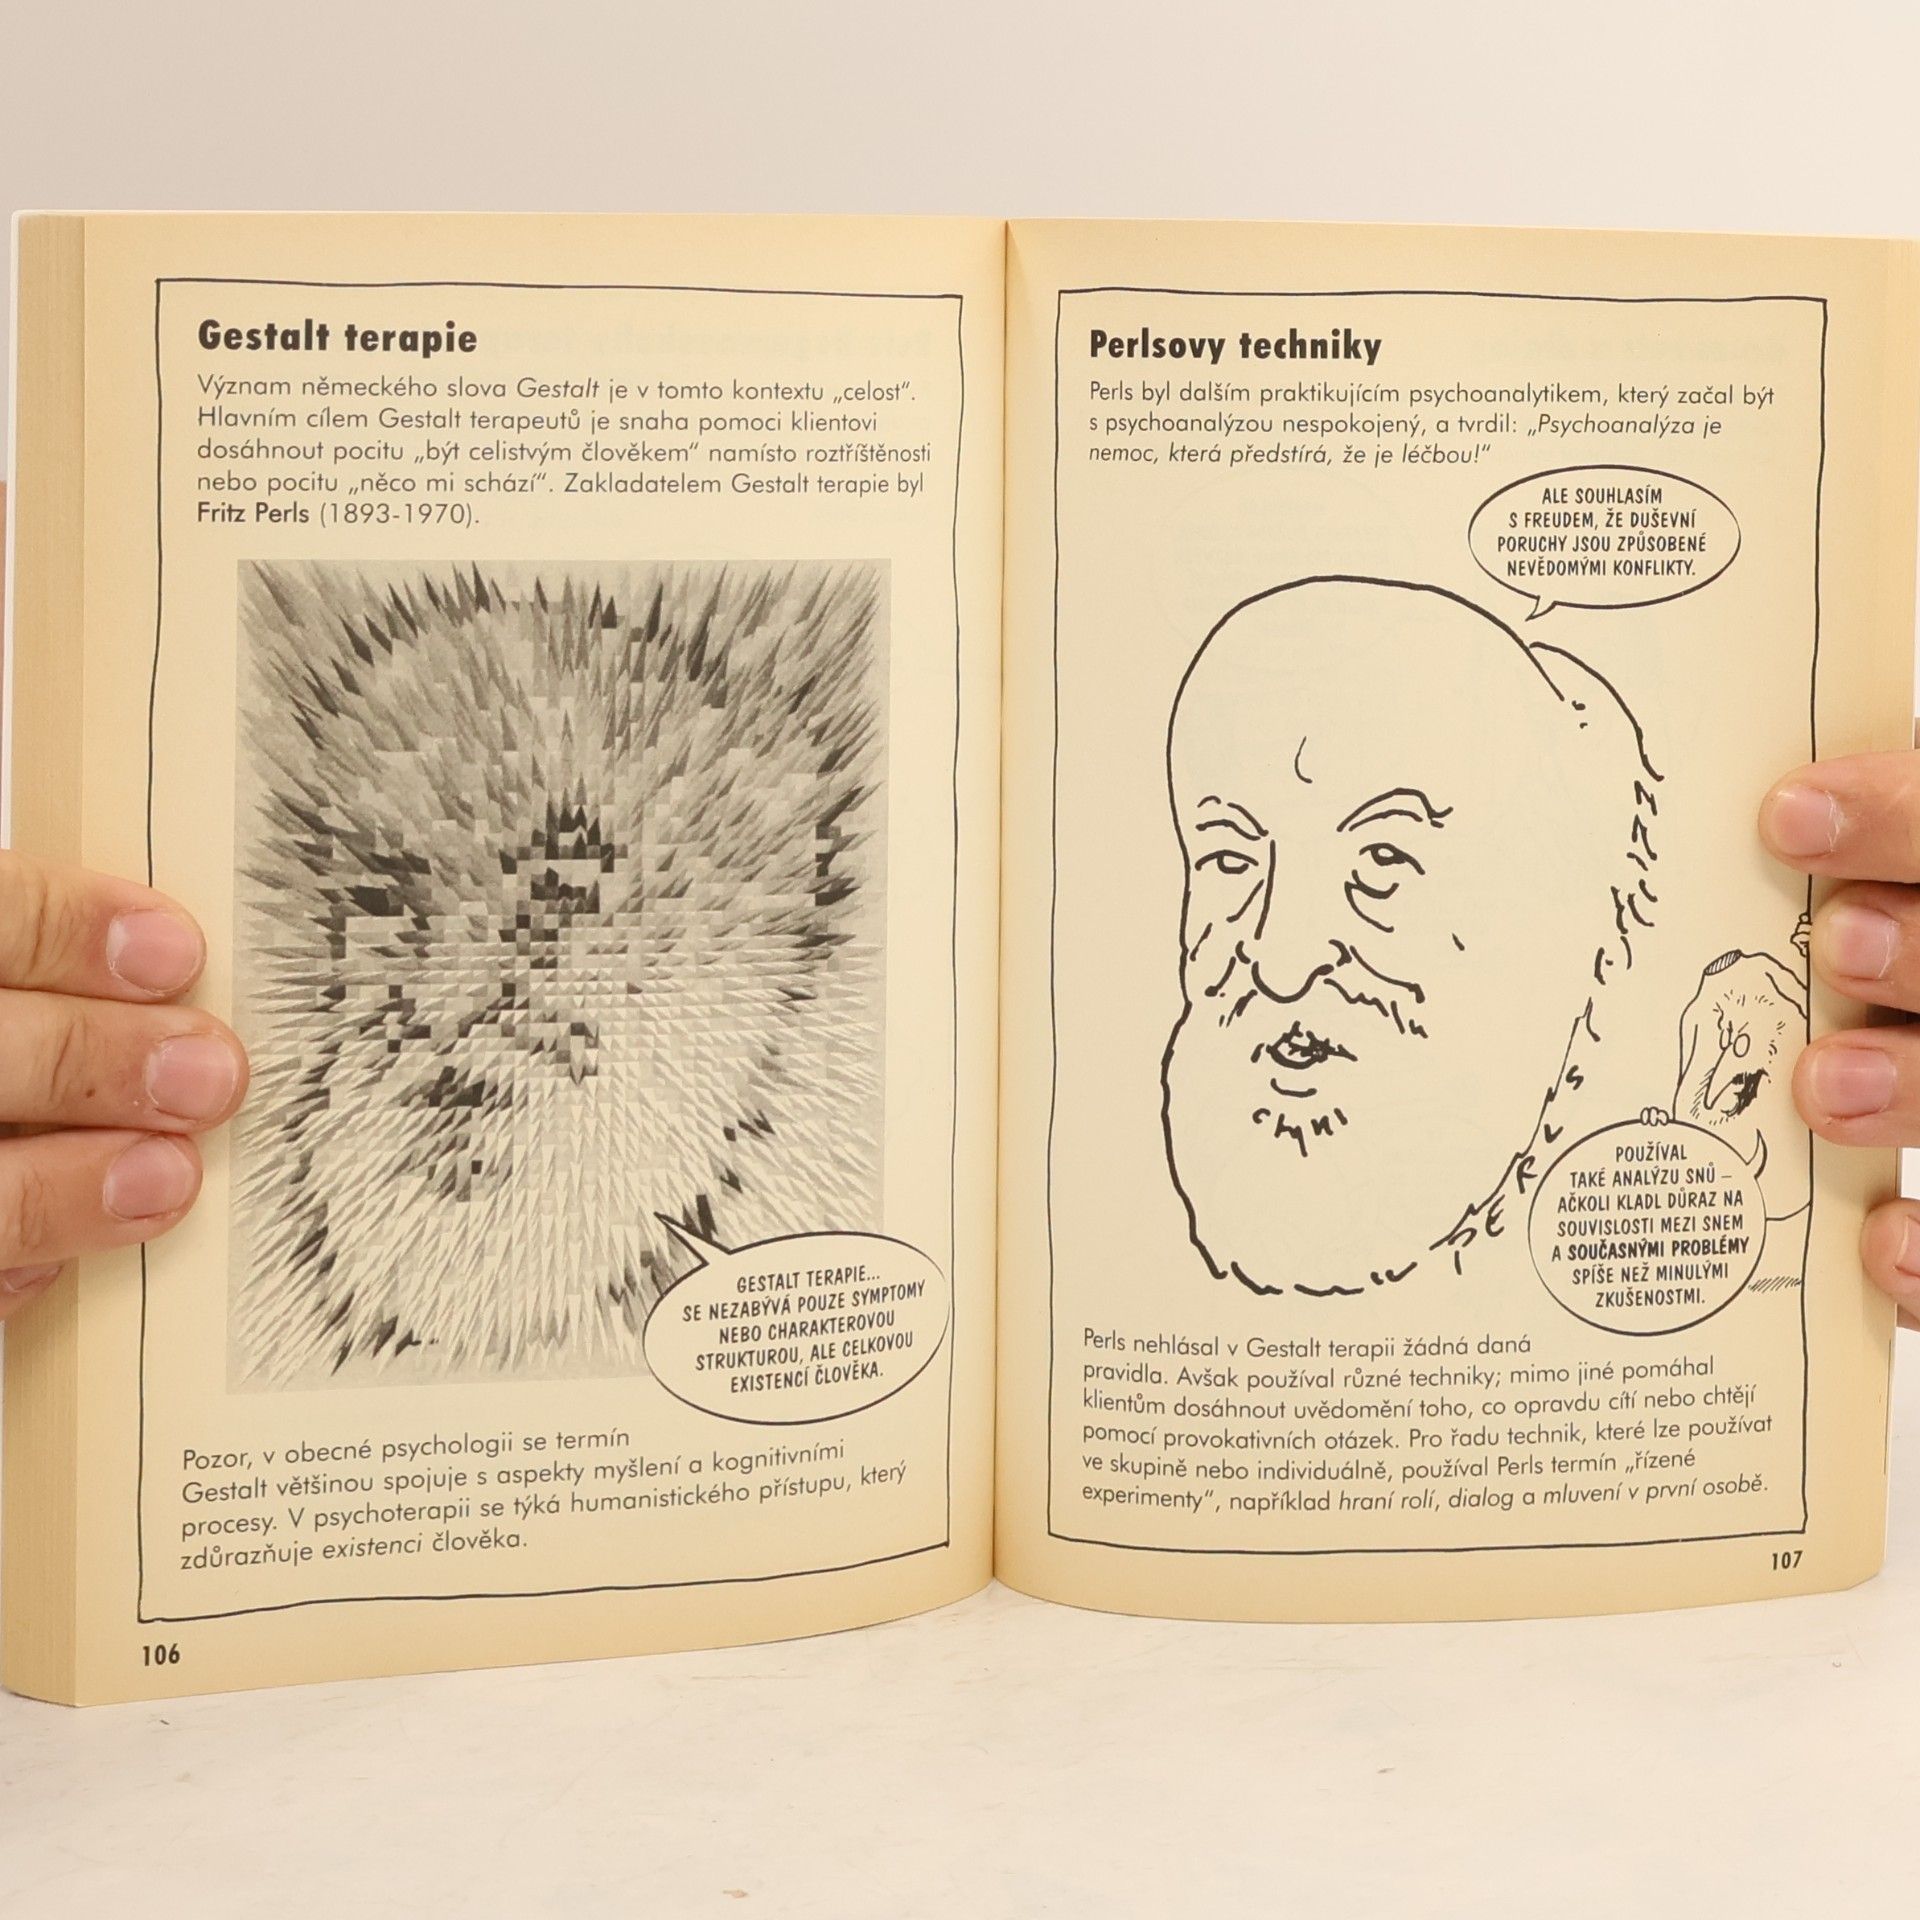 Gestalt terapie
Význam německého slova Gestalt je v tomto kontextu „celost“.
Hlavním cílem Gestalt terapeutů je snaha pomoci klientovi
dosáhnout pocitu „být celistvým člověkem“ namísto roztříštěnosti
nebo pocitu „něco mi schází“. Zakladatelem Gestalt terapie byl
Fritz Perls (1893-1970).
GESTALT TERAPIE...
SE NEZABÝVÁ POUZE SYMPTOMY
NEBO CHARAKTEROVOU
STRUKTUROU, ALE CELKOVOU
EXISTENCÍ ČLOVĚKA.
Pozor, v obecné psychologii se termín
Gestalt většinou spojuje s aspekty myšlení a kognitivními
procesy. V psychoterapii se týká humanistického přístupu, který
zdůrazňuje existenci člověka.
106
Perlsovy techniky
Perls byl dalším praktikujícím psychoanalytikem, který začal být
s psychoanalýzou nespokojený, a tvrdil: „Psychoanalýza je
nemoc, která předstírá, že je léčbou!“
ALE SOUHLASÍM
S FREUDEM, ŽE DUŠEVNÍ
PORUCHY JSOU ZPŮSOBENÉ
NEVĚDOMÝMI KONFLIKTY.
POUŽÍVAL
TAKÉ ANALÝZU SNŮ –
AČKOLI KLADL DŮRAZ NA
SOUVISLOSTI MEZI SNEM
A SOUČASNÝMI PROBLÉMY
SPÍŠE NEŽ MINULÝMI
ZKUŠENOSTMI.
Perls nehlásal v Gestalt terapii žádná daná
pravidla. Avšak používal různé techniky; mimo jiné pomáhal
klientům dosáhnout uvědomění toho, co opravdu cítí nebo chtějí
pomocí provokativních otázek. Pro řadu technik, které lze používat
ve skupině nebo individuálně, používal Perls termín „řízené
experimenty“, například hraní rolí, dialog a mluvení v první osobě.
107